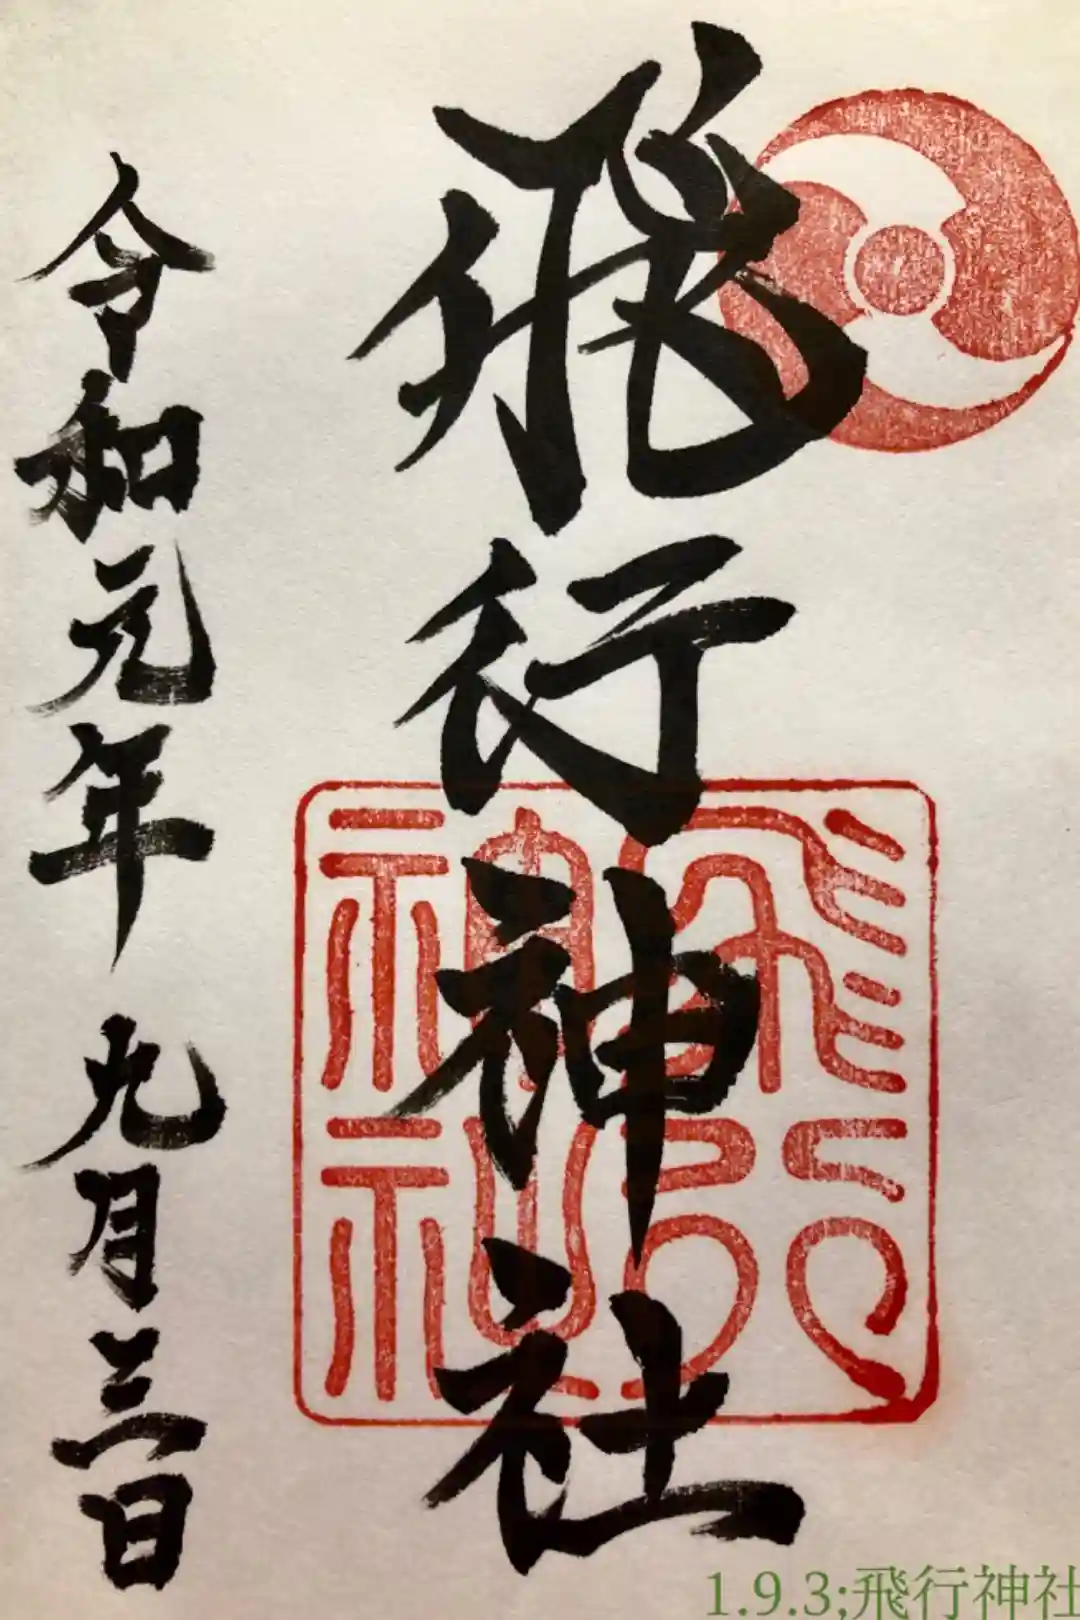 飛行神社
令和元年 九月三日
飛行神社
1.9.3;飛行神社